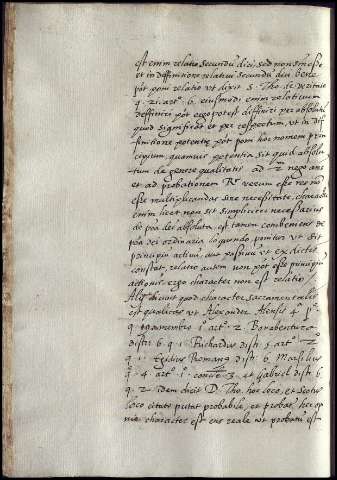 est enim relatio secundū dici, sed non s̄m esse
et in deffinitione relativi secundū dici bene
pōt poni relatio ut dixit S. Tho. de veritate
q. 21. artº. 6. eiusmodi enim relativum
deffiniri pōt ergo potest diffiniri per absolutū
quid significat et per respectum, ut in dif-
finitione potentię pōt poni hoc nomen prin
cipium, quamvis potentia sit quid absolu-
tum de genere qualitatis ad 2m nego ans
et ad probationem Rº verum esse res nō
esse multiplicandas sine necessitate, character
enim licet non sit simpliciter necessarius
de poā dei absoluta, est tamen conveniens de
poā dei ordinaria loquendo ponitur ut sit
principiū activū, aut passivū ut ex dictis
constat, relatio autem non pōt esse principiū
actionis ergo character non est relatio.
Aliqi dicunt quod character sacramentalis
est qualitas ut Alexander Alensis 4 p.
q. 19 membro 1º artº 2 Bonaventura
distī 6. q. 1 Richardus distī 5 artº 2
q. 1. Egidius Romanq distī 6. Marsilius
qº 4 artº 1º 3. et Gabriel distī 6
q. 2. idem dicit D. Tho. hoc loco, et Scotus
loco citato putat probabile, et probatr hęc opi
nio character est ens reale ut probatū est